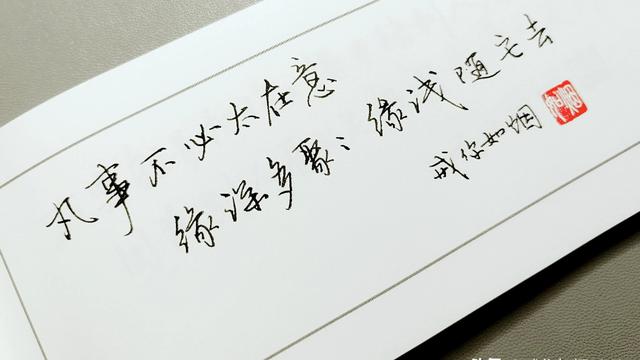 凡事不必太在意
缘深多聚；缘浅随它去
戒你如烟